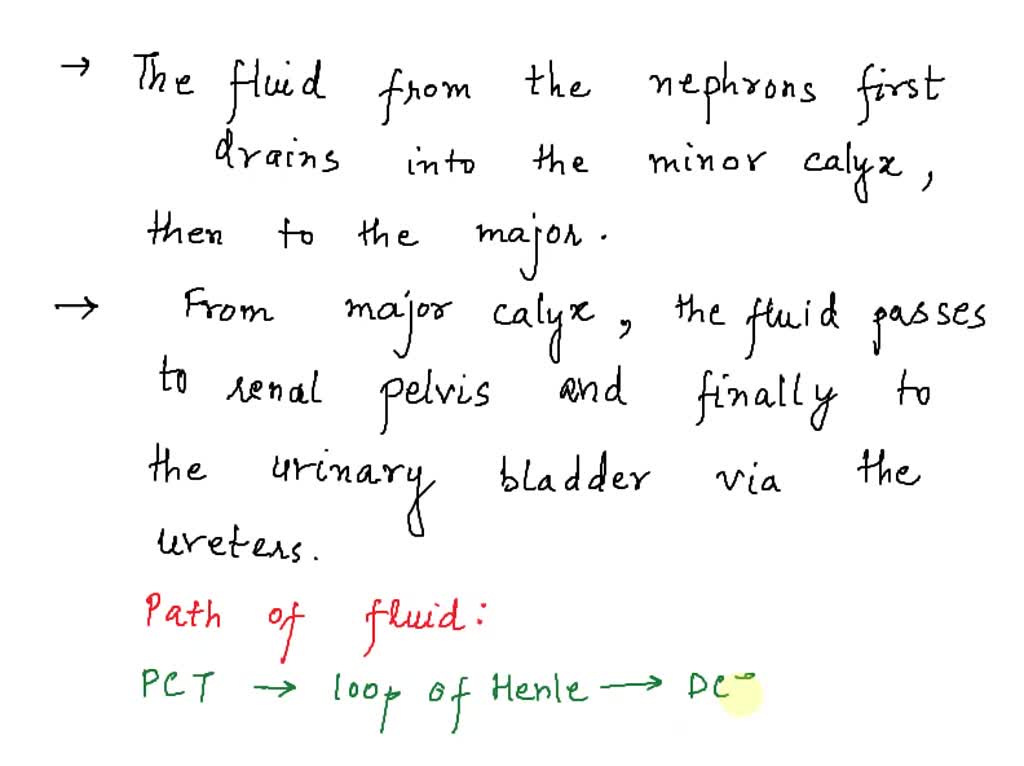 → The fluid from the nephrons first
drains into the minor calyx,
then to the major.
→ From major calyx, the fluid passes
to renal pelvis and finally to
the urinary bladder via the
ureters.
Path of fluid:
PCT → loop of Henle → DC